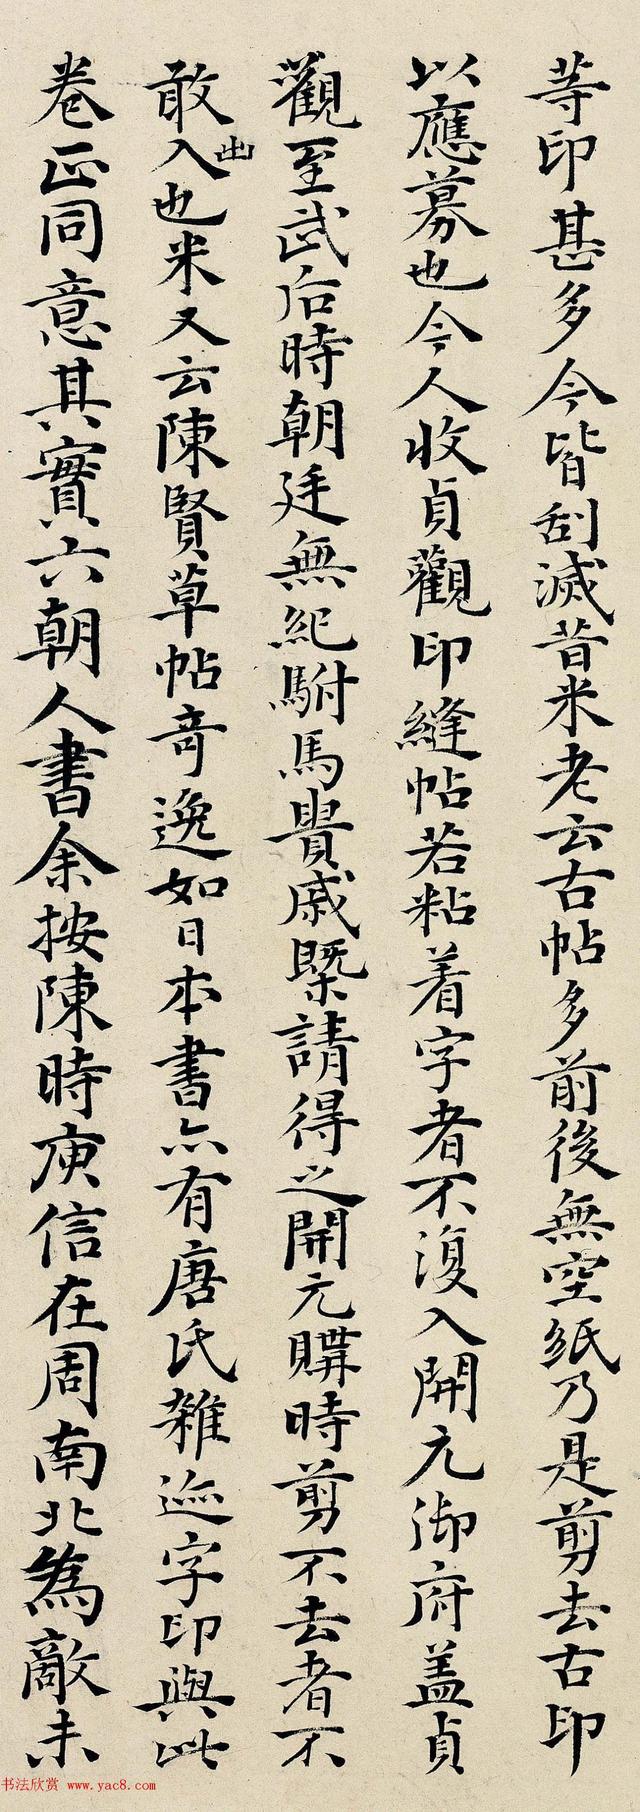 等印甚多今皆刮滅昔米老云古帖多前後無空紙乃是剪去古印
以應募也今人收貞觀印縫帖若粘着字者不復入開元御府盖貞
觀至武后時朝廷無紀駙馬貴戚槩請得之開元購時剪不去者不
敢出入也米又云陳賢草帖奇逸如日本書亦有唐氏雜迹字印與此
卷正同意其實六朝人書余按陳時庾信在周南北為敵未
书法欣赏 www.yac8.com